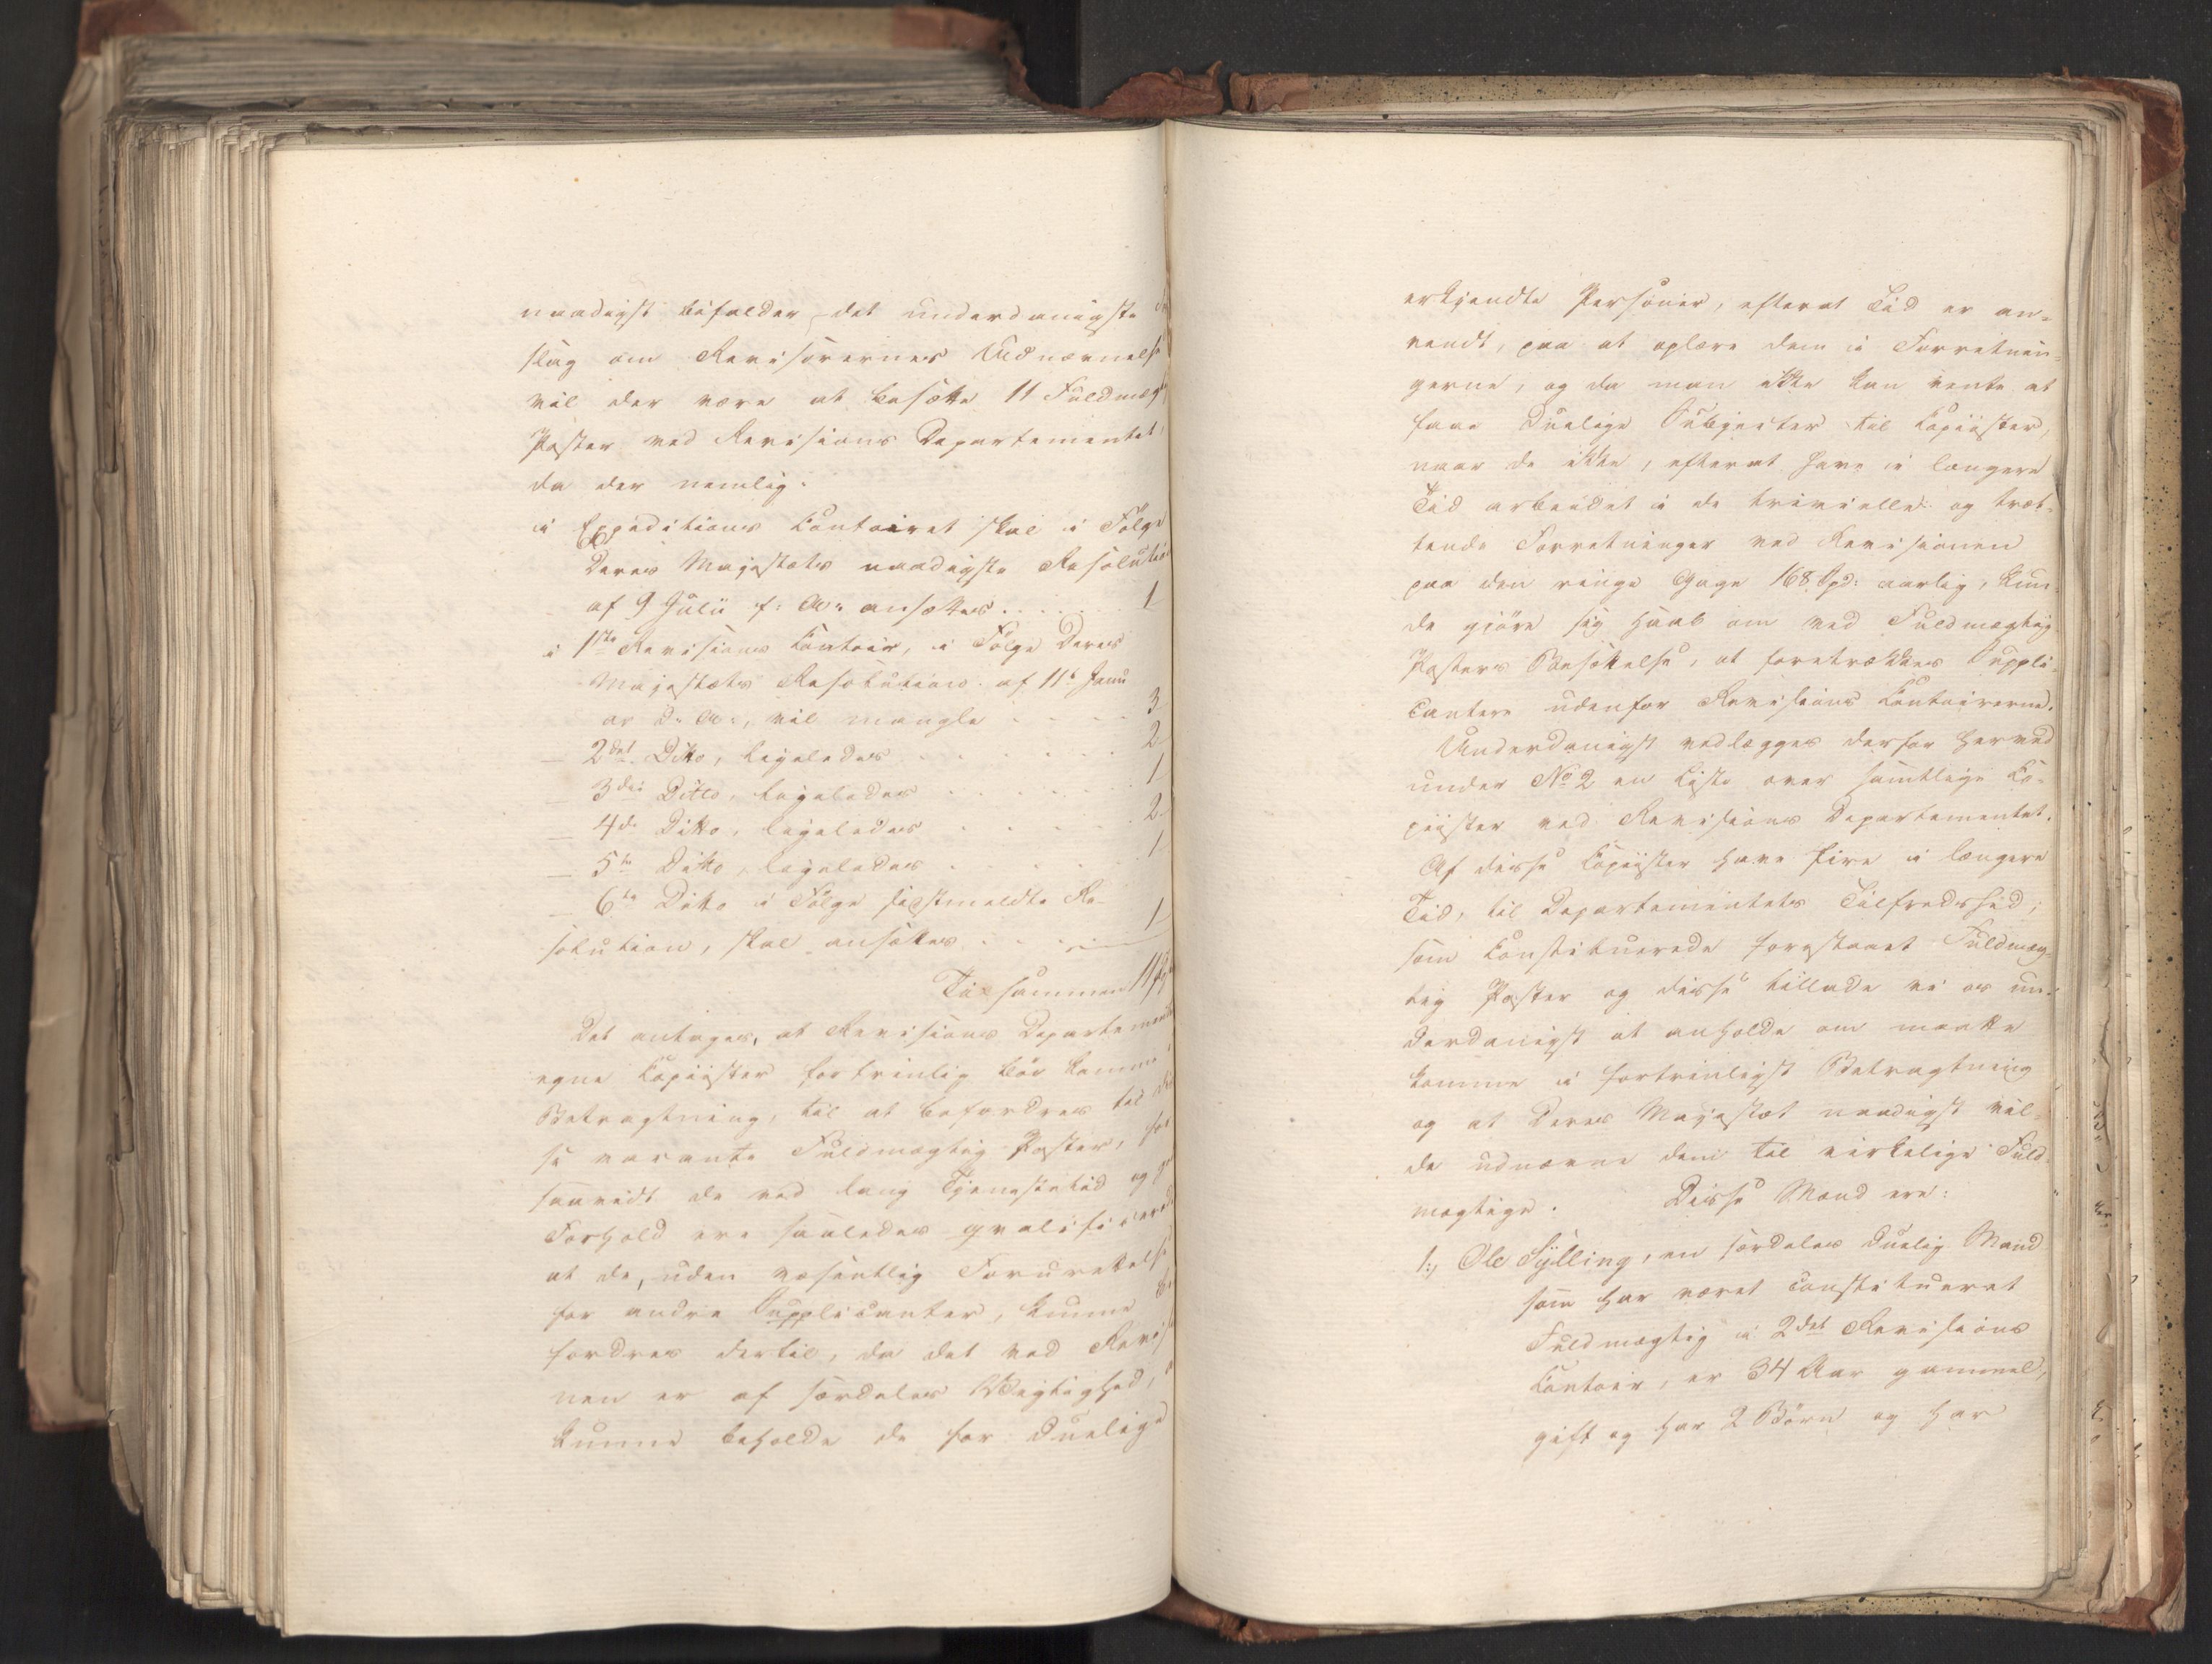 naadigst bifalder det underdanigste
slag om Revisorernes Udnævnelse
vil der være at besætte 11 Fuldmægt
Poster ved Revisions Departementet,
da der nemlig:
i Expeditions Contoiret skal i Følge
Deres Majestæts naadigste Resolution
af 9 Julii f: A: ansættes . . . . . 1
i 1ste Revisions Contoir, i Følge Deres
Majestæts Resolution af 11te Janu
ar d: A:, vil mangle . . . . 3
— 2det Ditto, ligeledes . . . . . . 2
— 3die Ditto, ligeledes . . . . . . 1
— 4de Ditto, ligeledes . . . . . 2
— 5te Ditto, ligeledes . . . . . 1
— 6te Ditto i Følge sidstmeldte Re-
solution, skal ansættes . . . . . 1
Tilsammen 11
Det antages, at Revisions Departementets
egne Copiister fortrinlig bør komme i
Betragtning, til at befordres til dis
se vacante Fuldmægtig Poster, for
saavidt de ved lang Tjenestetid og godt
Forhold ere saaledes qvalificerede
at de, uden væsentlig Forurettelse
for andre Supplicanter, kunne be
fordres dertil, da det ved Revisio
nen er af særdeles Vigtighed, at
kunne beholde de for duelige
erkjendte Personer, efterat Tid er an-
vendt, paa at oplære dem i Forretnin-
gerne, og da man ikke kan vente at
faae duelige Subjecter til Copiister,
naar de ikke, efterat have i længere
Tid arbeidet i de trivielle og træt-
tende Forretninger ved Revisionen
paa den ringe Gage 168 Spd: aarlig, kun-
de gjøre sig Haab om ved Fuldmægtig
Posters Besættelse, at foretrækkes Suppli-
canter udenfor Revisions Contoirerne.
Underdanigst vedlægges derfor herved
under No 2 en Liste over samtlige Co-
piister ved Revisions Departementet.
Af disse Copiister have fire i længere
Tid, til Departementets Tilfredshed,
som Constituerede forestaaet Fuldmæg-
tig Poster og disse tillade vi os un-
derdanigst at anholde om maatte
komme i fortrinligst Betragtning
og at Deres Majestæt naadigst vil-
de udnævne dem til virkelige Fuld-
mægtige. Disse Mænd ere:
1:, Ole Sylling, en særdeles duelig Mand
som har været constitueret
Fuldmægtig i 2det Revisions
Contoir, er 34 Aar gammel,
gift og har 2 Børn og har